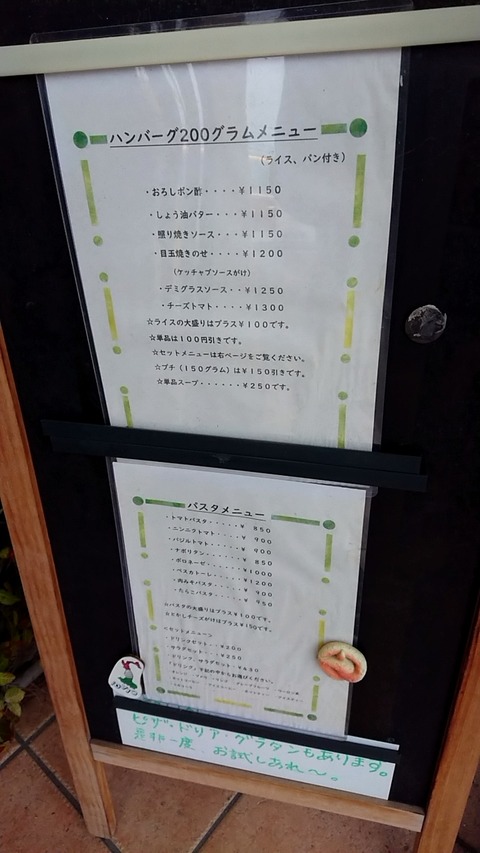 ハンバーグ200グラムメニュー
(ライス、パン付き)
・おろしポン酢・・・・¥1150
・しょう油バター・・・¥1150
・照り焼きソース・・・¥1150
・目玉焼きのせ・・・・¥1200
(ケッチャプソースがけ)
・デミグラスソース・・¥1250
・チーズトマト・・・・¥1300
☆ライスの大盛りはプラス¥100です。
☆単品は100円引きです。
☆セットメニューは右ページをご覧ください。
☆プチ(150グラム)は¥150引きです。
☆単品スープ・・・・・・¥250です。
パスタメニュー
・トマトパスタ・・・・・¥ 850
・ニンニクトマト・・・・¥ 900
・バジルトマト・・・・・¥ 900
・ナポリタン・・・・・・¥ 850
・ボロネーゼ・・・・・・¥1000
・ペスカトーレ・・・・・¥1200
・肉みそパスタ・・・・・¥ 900
・たらこパスタ・・・・・¥ 950
☆パスタの大盛りはプラス¥100です。
☆とかしチーズがけはプラス¥150です。
☆セットメニュー☆
・ドリンクセット・・・¥200
・サラダセット・・・・¥250
・ドリンク、サラダセット・¥450
ピザ・ドリア・グラタンもあります。
是非一度 お試しあれ〜。